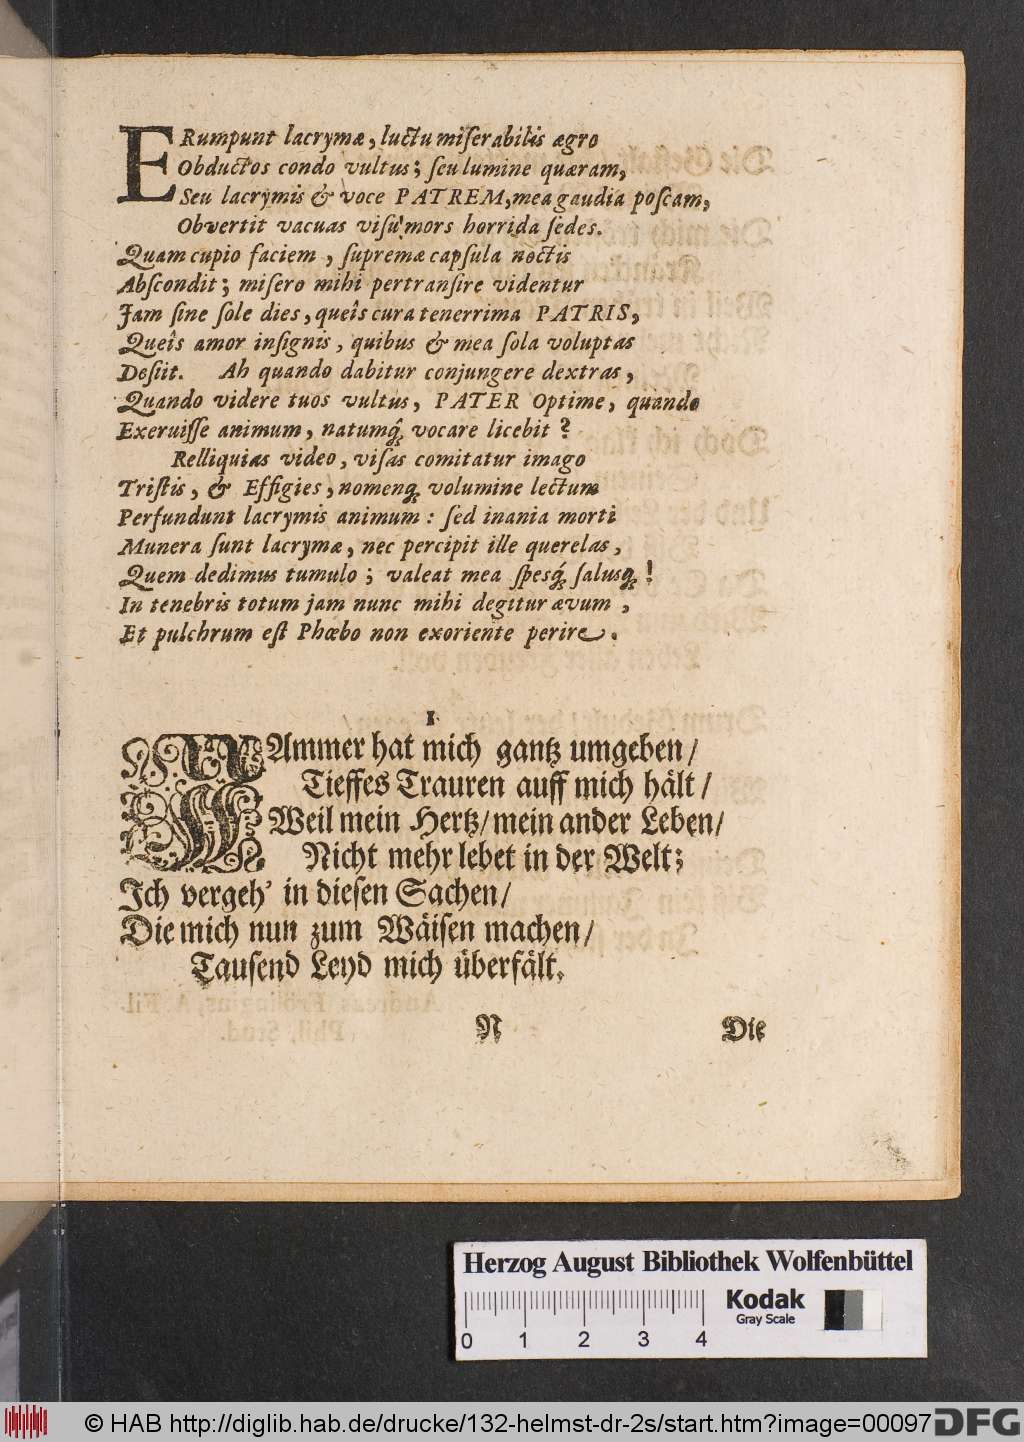 ERumpunt lacrymæ, luctu miſerabilis ægro
Obductos condo vultus; ſeu lumine quæram,
Seu lacrymis & voce PATREM, mea gaudia poſcam,
Obvertit vacuas viſu mors horrida ſedes.
Quam cupio faciem, ſupremæ capſula noctis
Abſcondit; miſero mihi pertranſire videntur
Jam ſine ſole dies, queîs cura tenerrima PATRIS,
Queîs amor inſignis, quibus & mea ſola voluptas
Deſiit. Ah quando dabitur conjungere dextras,
Quando videre tuos vultus, PATER Optime, quando
Exeruiſſe animum, natumq́; vocare licebit?
Relliquias video, viſas comitatur imago
Triſtis, & Effigies, nomenq; volumine lectum
Perfundunt lacrymis animum: ſed inania morti
Munera ſunt lacrymæ, nec percipit ille querelas,
Quem dedimus tumulo; valeat mea ſpesq́; ſalusq;!
In tenebris totum jam nunc mihi degitur ævum,
Et pulchrum eſt Phœbo non exoriente perire.
1.
JAmmer hat mich gantz umgeben/
Tieffes Trauren auff mich hält/
Weil mein Hertz/ mein ander Leben/
Nicht mehr lebet in der Welt;
Ich vergeh' in dieſen Sachen/
Die mich nun zum Wäiſen machen/
Tauſend Leyd mich überfält.
N Die
Herzog August Bibliothek Wolfenbüttel
0 1 2 3 4
Kodak
Gray Scale
© HAB http://diglib.hab.de/drucke/132-helmst-dr-2s/start.htm?image=00097
DFG